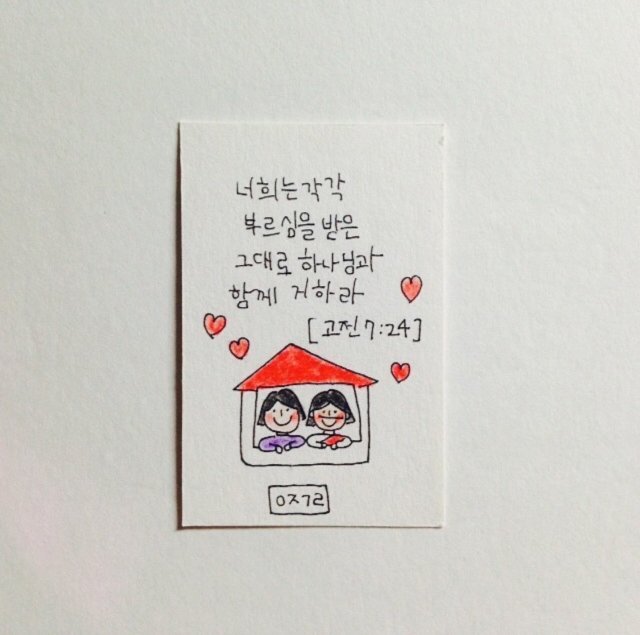 너희는 각각
부르심을 받은
그대로 하나님과
함께 거하라
[고전 7:24]
ㅇㅈㄱㄹ